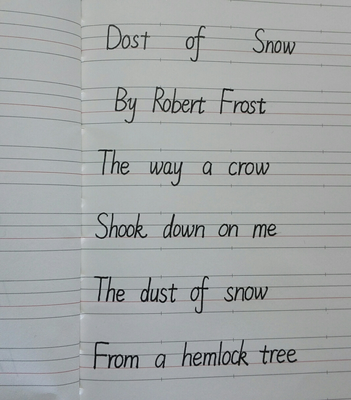 Dost of Snow
By Robert Frost
The way a crow
Shook down on me
The dust of snow
From a hemlock tree